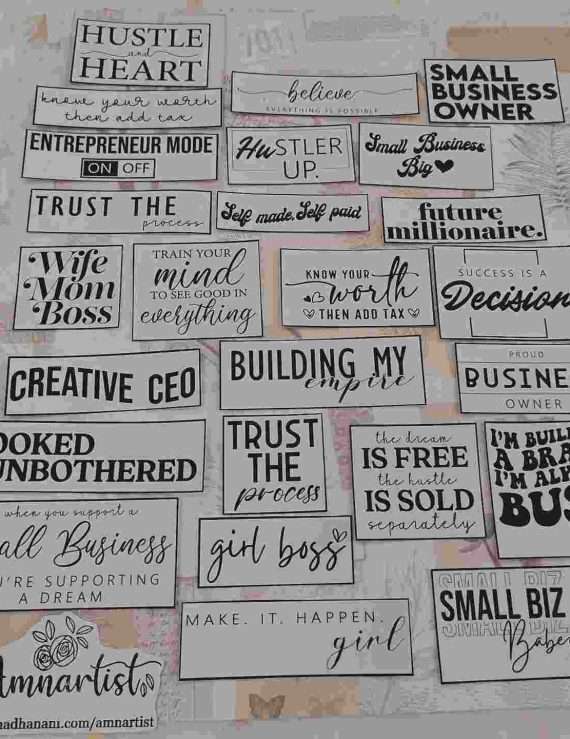 HUSTLE
and
HEART
know your worth
then add tax
believe
EVERYTHING IS POSSIBLE
SMALL
BUSINESS
OWNER
ENTREPRENEUR MODE
ON OFF
HUSTLER
UP.
Small Business
Big
TRUST THE
process
Self made, Self paid
future
millionaire.
Wife
Mom
Boss
TRAIN YOUR
mind
TO SEE GOOD IN
everything
KNOW YOUR
worth
THEN ADD TAX
SUCCESS IS A
Decision
CREATIVE CEO
BUILDING MY
empire
PROUD
BUSINE
OWNER
OOKED
UNBOTHERED
TRUST
THE
process
the dream
IS FREE
the hustle
IS SOLD
separately
I'M BUIL
A BRA
I'M AL
BUS
when you support a
all Business
U'RE SUPPORTING
A DREAM
girl boss
MAKE. IT. HAPPEN.
girl
SMALL BIZ
SMALL BIZ
SMALL BIZ
Babe
Amnartist
adhanani.com/amnartist